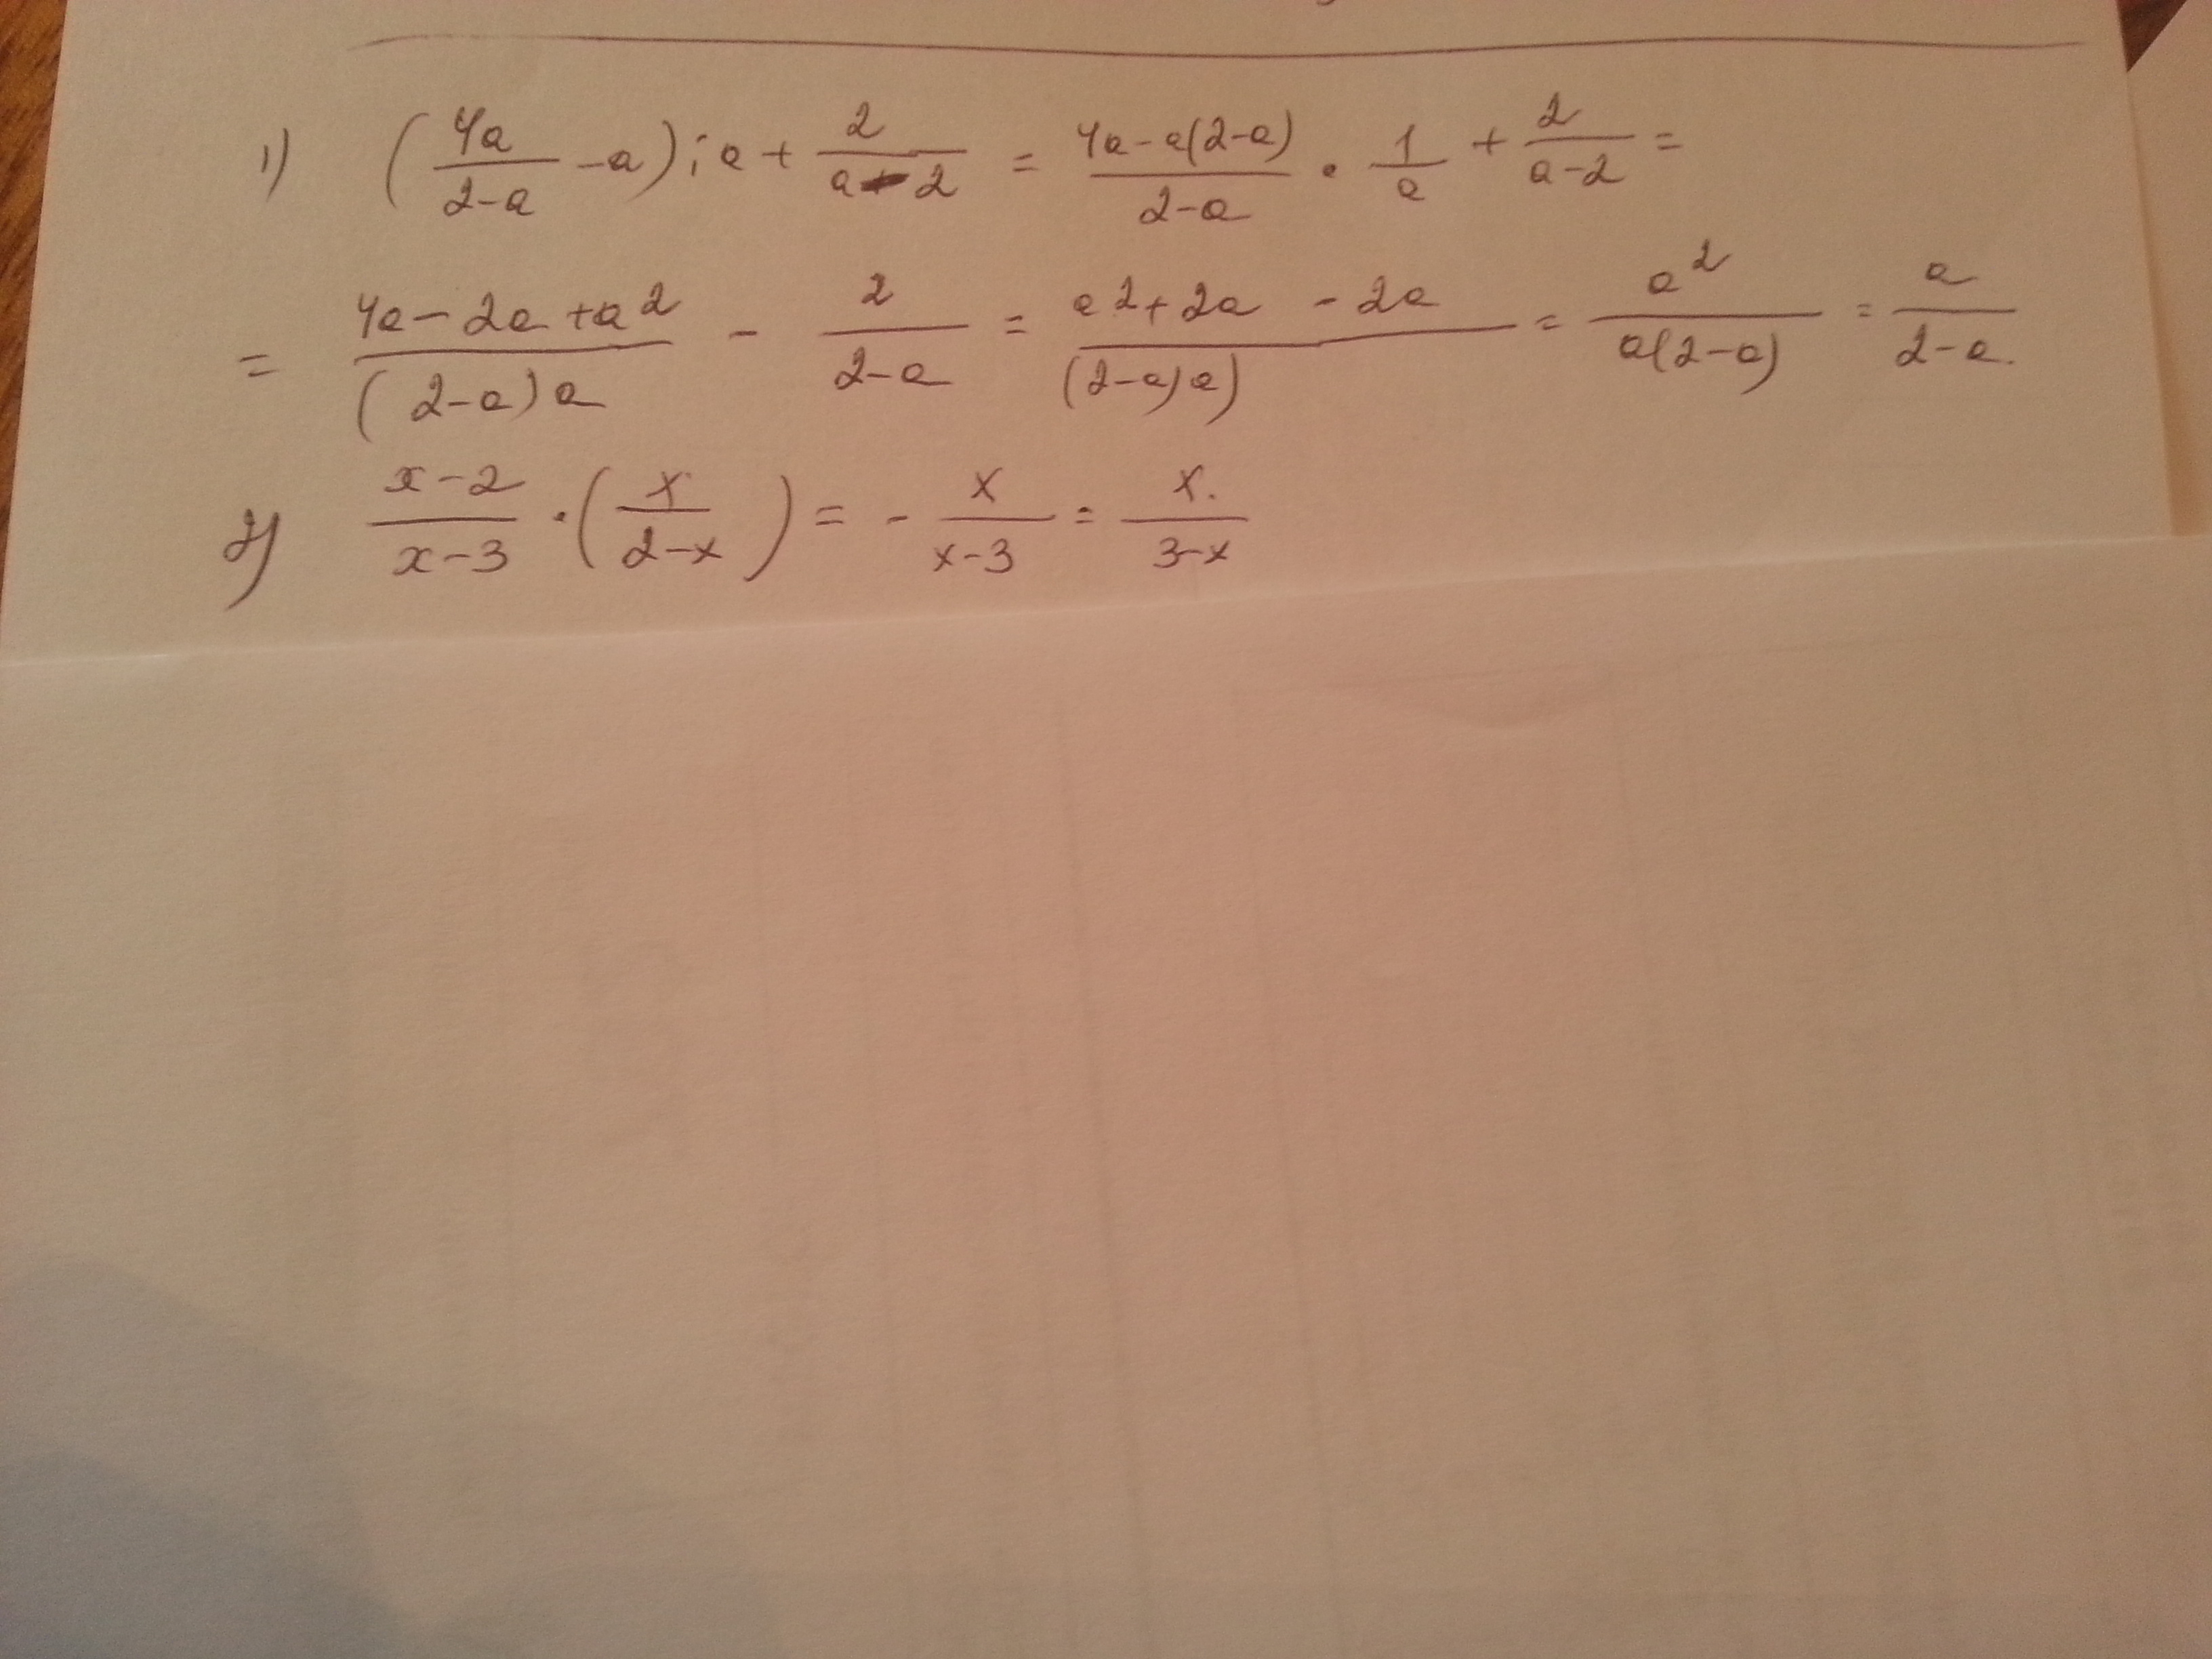 1) (4a/(2-a) - a) : a + 2/(a-2) = (4a - a(2-a))/(2-a) · 1/a + 2/(a-2) =
= (4a - 2a + a²)/((2-a)a) - 2/(2-a) = (a² + 2a - 2a)/((2-a)a) = a²/(a(2-a)) = a/(2-a).
2) (x-2)/(x-3) · (x/(2-x)) = - x/(x-3) = x/(3-x)